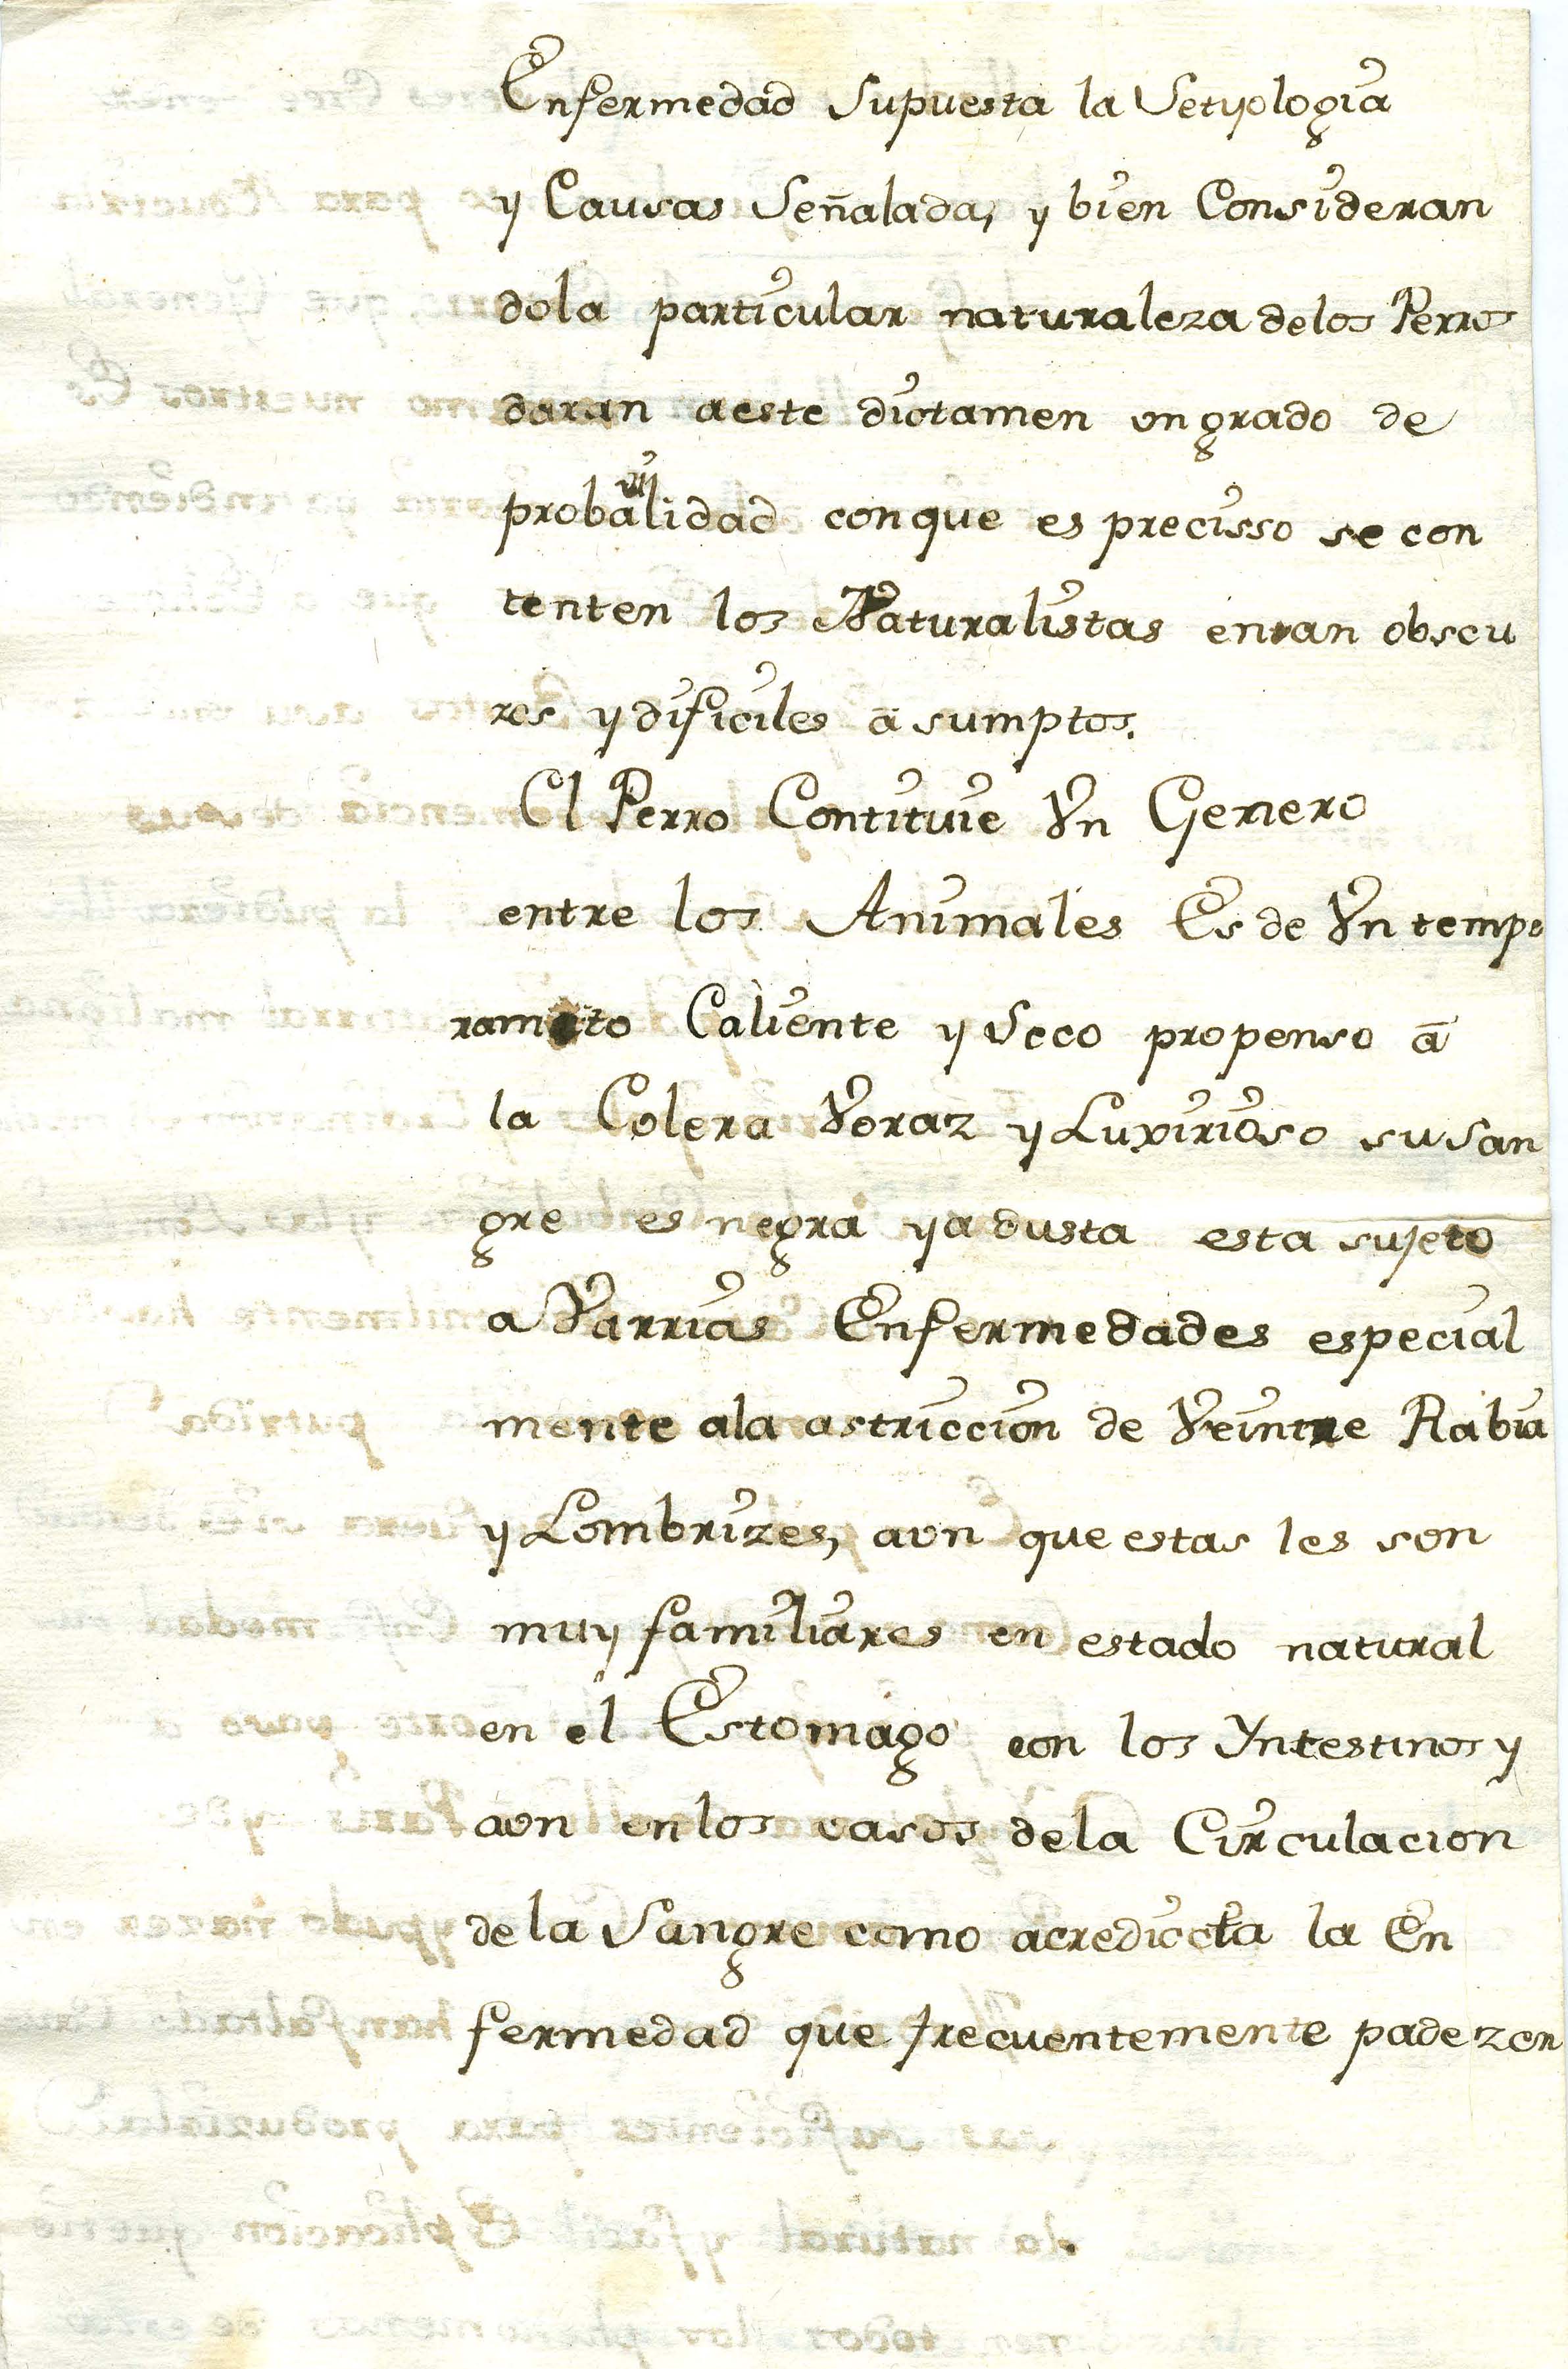 Enfermedad Supuesta la Setyologia
y Causas Señalada, y bien Consideran
dola particular naturaleza delos Perros
daran aeste dictamen un grado de
probavilidad conque es precisso se con
tenten los Naturalistas entan obscu
ros y dificiles asumptos.
El Perro Contituie Vn Genero
entre los Animales Es de Vn tempe
ramento Caliente y Seco propenso â
la Colera Voraz y Luxirioso su San
gre es negra y adusta esta sujeto
a Varrias Enfermedades especial
mente ala astriccion de Veintre Rabia
y Lombrizes, aun que estas les son
muy familiares en estado natural
en el Estomago con los Yntestinos y
aun en los vasos dela Circulacion
de la Sangre como acredicta la En
fermedad que frecuentemente padezen